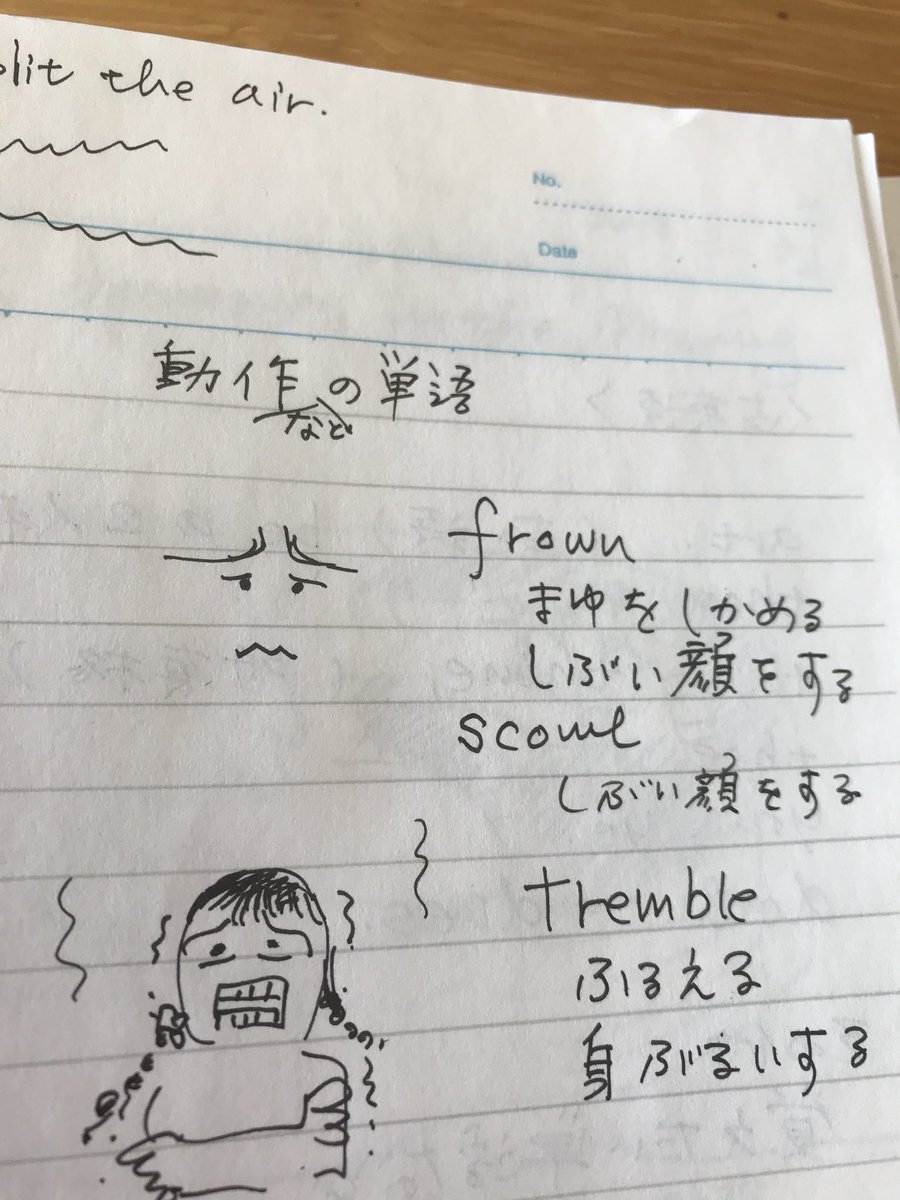 split the air.
No.
Date
動作などの単語
frown
まゆをしかめる
しぶい顔をする
scowl
しぶい顔をする
tremble
ふるえる
身ぶるいする